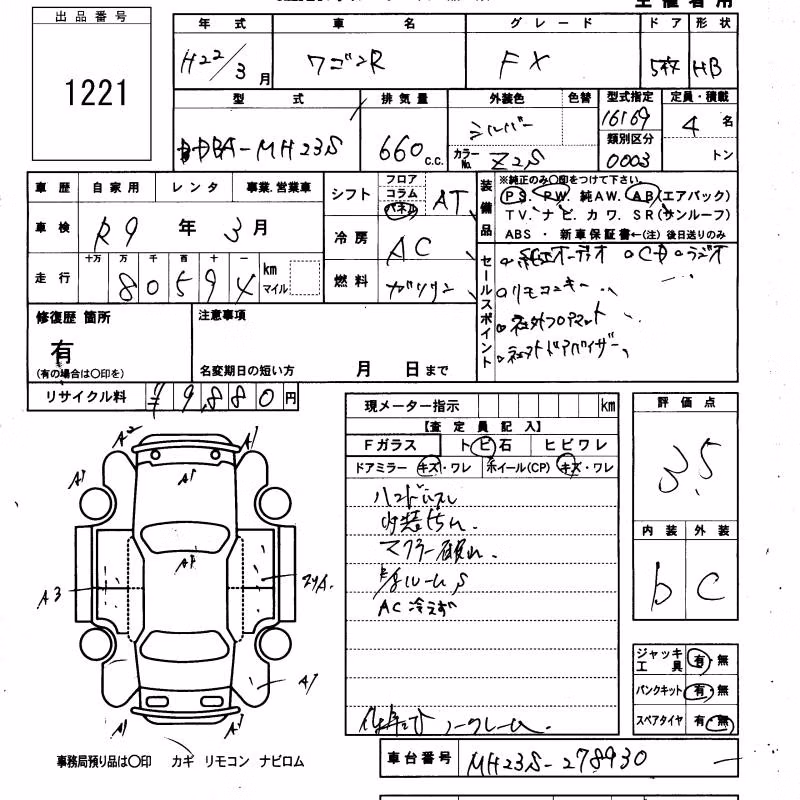 出品番号
1221
年式 車名 グレード ドア 形状
H22/3月 ワゴンR FX 5枚 HB
型式 排気量 外装色 色替 型式指定 定員・積載
DBA-MH23S 660 c.c. シルバー 16169 4名
カラーNo. Z2S 類別区分 0003 トン
車歴 自家用 レンタ 事業.営業車
シフト フロア コラム パネル AT
装備品 ※純正のみ〇印をつけて下さい。
PS. PW. 純AW. AB(エアバック)
TV. ナビ. カワ. SR(サンルーフ)
ABS ・ 新車保証書←(注) 後日送りのみ
車検 R9年 3月
冷房 AC
走行 十万 万 千 百 十 一 km マイル
80594
燃料 ガソリン
セールスポイント
純正オーディオ CD ラジオ
リモコンキー
社外フロアマット
社外ドアバイザー
修復歴 箇所
有
(有の場合は〇印を)
注意事項
名変期日の短い方 月 日まで
リサイクル料 ¥9,880円
現メーター指示 km
【査定員記入】
Fガラス トビ石 ヒビワレ
ドアミラー キズ・ワレ ホイール(CP) キズ・ワレ
ハンドルスレ
内装ヨゴレ
マフラー
ルームS
AC冷えず
ノークレーム
評価点
3.5
内装 外装
b C
ジャッキ工具 有・無
パンクキット 有・無
スペアタイヤ 有・無
A2 A1
A1 A1
A1
A3
A1
A1 A1
事務局預り品は〇印 カギ リモコン ナビロム
車台番号 MH23S-278930